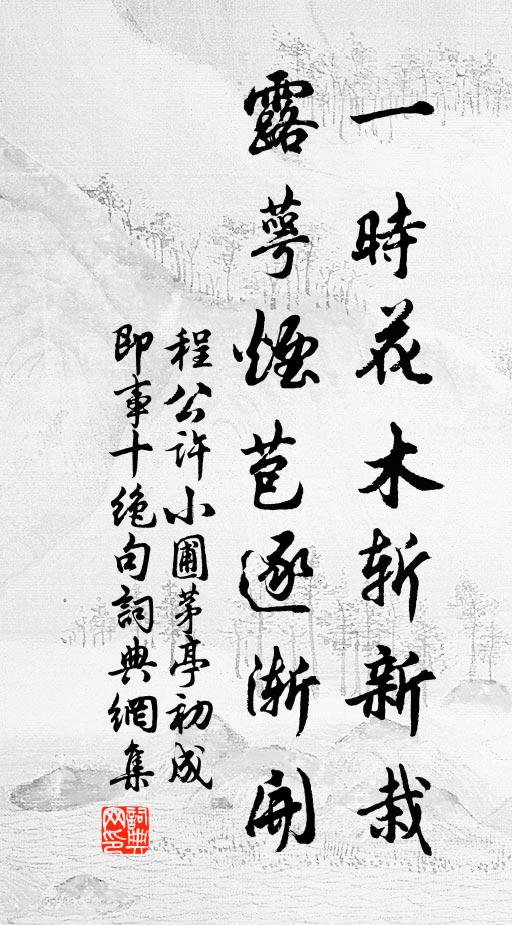 一時花木斬新栽
露萼煙苞逐漸開
程公許小圃茅亭初成
即事十絕句詞典網集
詞典網印